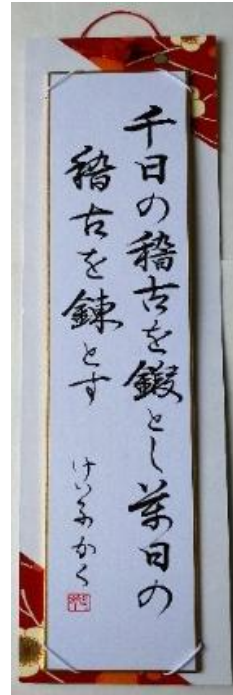 千日の稽古を鍛とし萬日の
稽古を錬とす
けいふかく